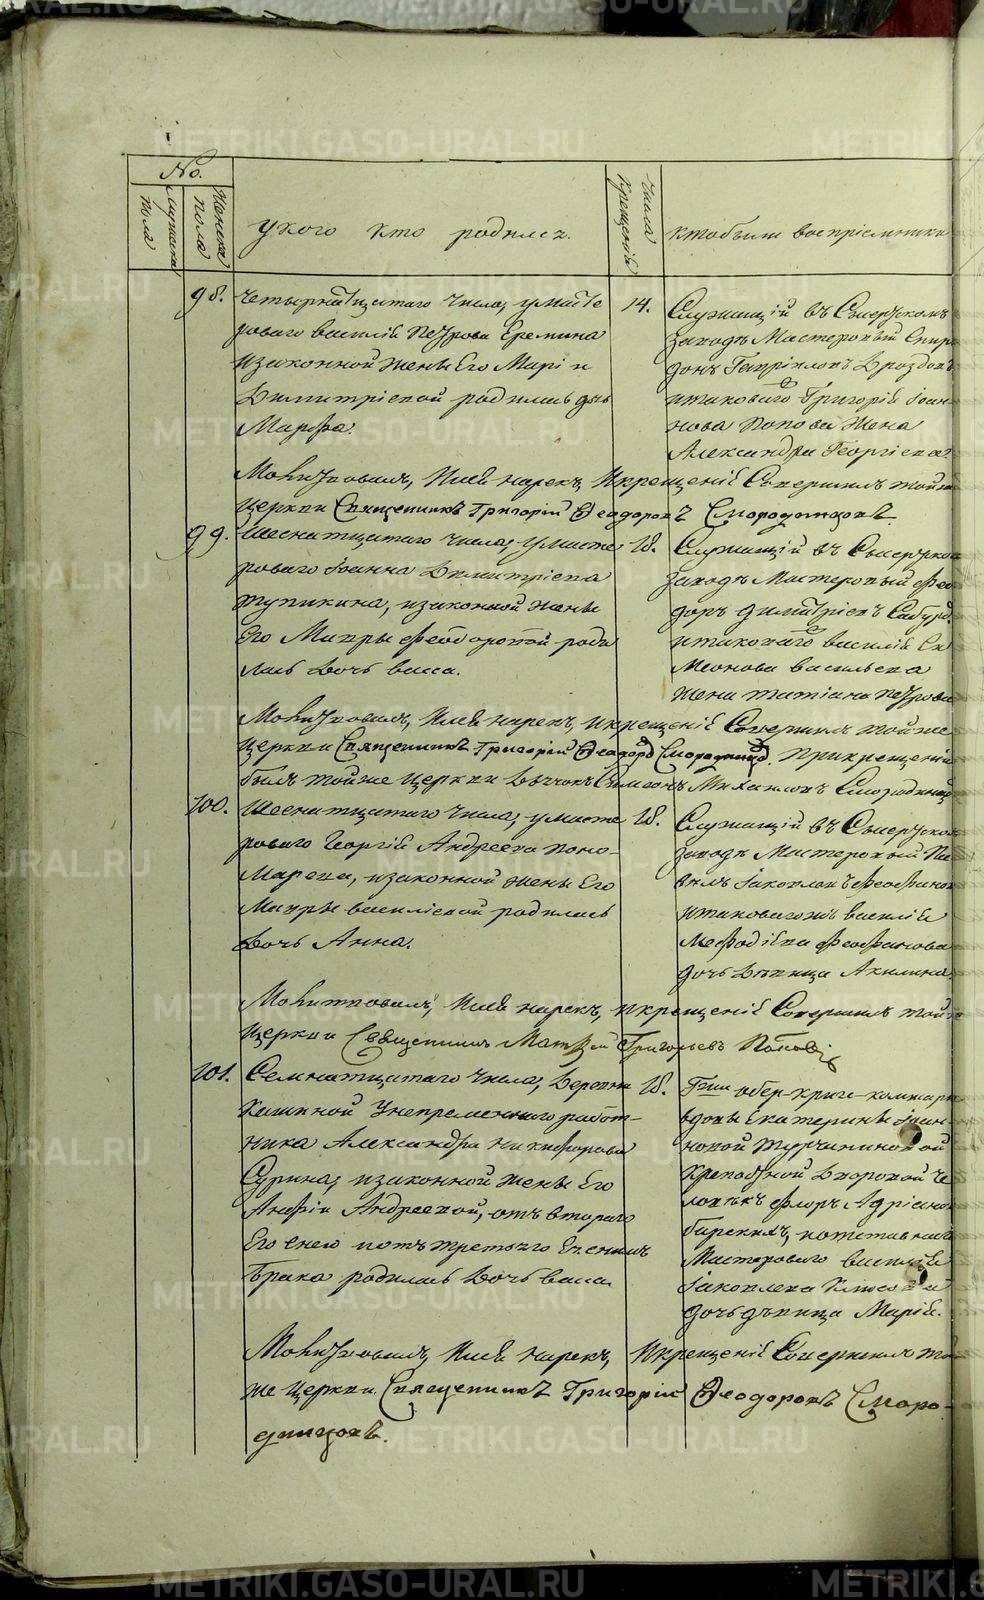 METRIKI.GASO-URAL.RU
No.
Мужеска пола
Женска пола
У кого кто родился.
Числа крещенiй
Кто были воспрiемники
98.
Четырнатцатаго числа, у мастероваго Василiя Петрова Еремина
изъ законной жены Его Марiи
Димитрiевой родилась дочь
Марфа.
14.
Служащiй въ Сысертскомъ
заводѣ Мастеровый Спири
донъ Гаврiиловъ Дроздовъ
и таковаго Григорiя Iоан
нова Попова жена
Александра Георгiева.
Молитвовалъ, Имя нарекъ, и крещенiе Совершилъ той же
церкви Священникъ Григорiй Ѳеодоровъ Смородинцовъ
99.
Шеснатцатаго числа, у масте
роваго Iоанна Димитрiева
Тупикина, изъ законной жены
Его Мавры Феодоровой роди
лась дочь Васса.
18.
Служащiй въ Сысертском
заводѣ Мастеровый Фео
доръ Димитрiевъ
и таковаго Василiя
Васильева
жена Татiана Петрова
Молитвовалъ, Имя нарекъ, и крещенiе Совершилъ той же
церкви Священникъ Григорiй Ѳеодоровъ Смородинцовъ. При крещенiи
былъ той же церкви Дьячокъ Симеонъ Михаиловъ Смородинцовъ
100.
Шеснатцатаго числа, у масте
роваго Георгiя Андреева Поно-
марева, изъ законной жены Его
Мавры Василiевой родилась
Дочь Анна.
18.
Служащiй въ Сысертском
заводѣ Мастеровый Па
велъ Iаковлевъ Феофанов
и таковаго жъ Василiя
Мефодiева Феофанова
дочь дѣвица Акилина
Молитвовалъ, Имя нарекъ, и крещенiе Совершилъ той же
церкви Священникъ Матѳей Григорьевъ Поповъ
101.
Семнатцатаго числа, деревни
Кашиной у непременнаго работ-
ника Александра Никифорова
Сурина, изъ законной жены Его
Анфiи Андреевой, отъ втораго
Его и отъ третьяго Ея
брака родилась дочь Васса.
18.
Г-жи обер-криг-комисара
вдовы Екатерины Iоан
новой Турчаниновой
крепостной Дворовой че
ловѣкъ Флоръ Адрiанов
Мастероваго Василiя
Iаковлева
дочь дѣвица Марiя.
Молитвовалъ, Имя нарекъ, и крещенiе Совершилъ той
же церкви Священникъ Григорiй Ѳеодоровъ Сморо-
динцовъ.